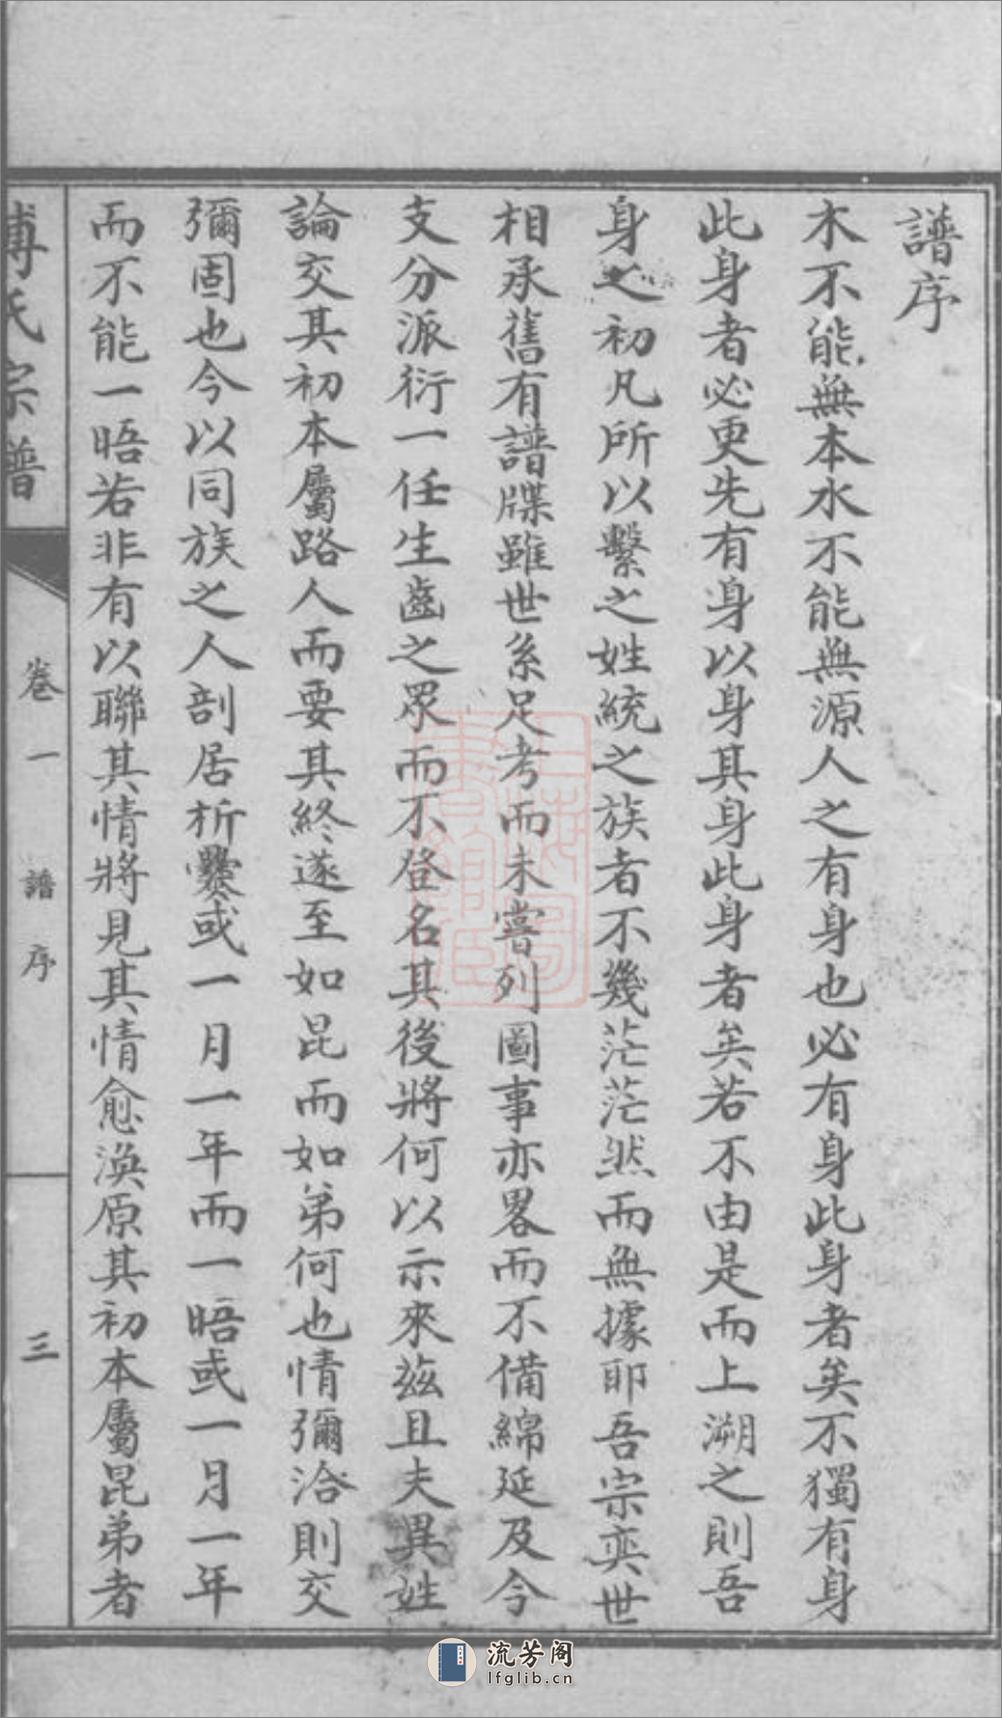 譜序
木不能無本水不能無源人之有身也必有身此身者矣不獨有身
此身者必更先有身以身其身此身者矣若不由是而上溯之則吾
身之初凡所以繫之姓統之族者不幾茫茫然而無據耶吾宗奕世
相承舊有譜牒雖世系足考而未嘗列圖事亦畧而不備綿延及今
支分派衍一任生齒之眾而不登名其後將何以示來茲且夫異姓
論交其初本屬路人而要其終遂至如昆而如弟何也情彌洽則交
彌固也今以同族之人剖居析爨或一月一年而一晤或一月一年
而不能一晤若非有以聯其情將見其情愈渙原其初本屬昆弟者
氏宗譜
卷一
譜序
三
上海圖書館藏
流芳阁
lfglib.cn